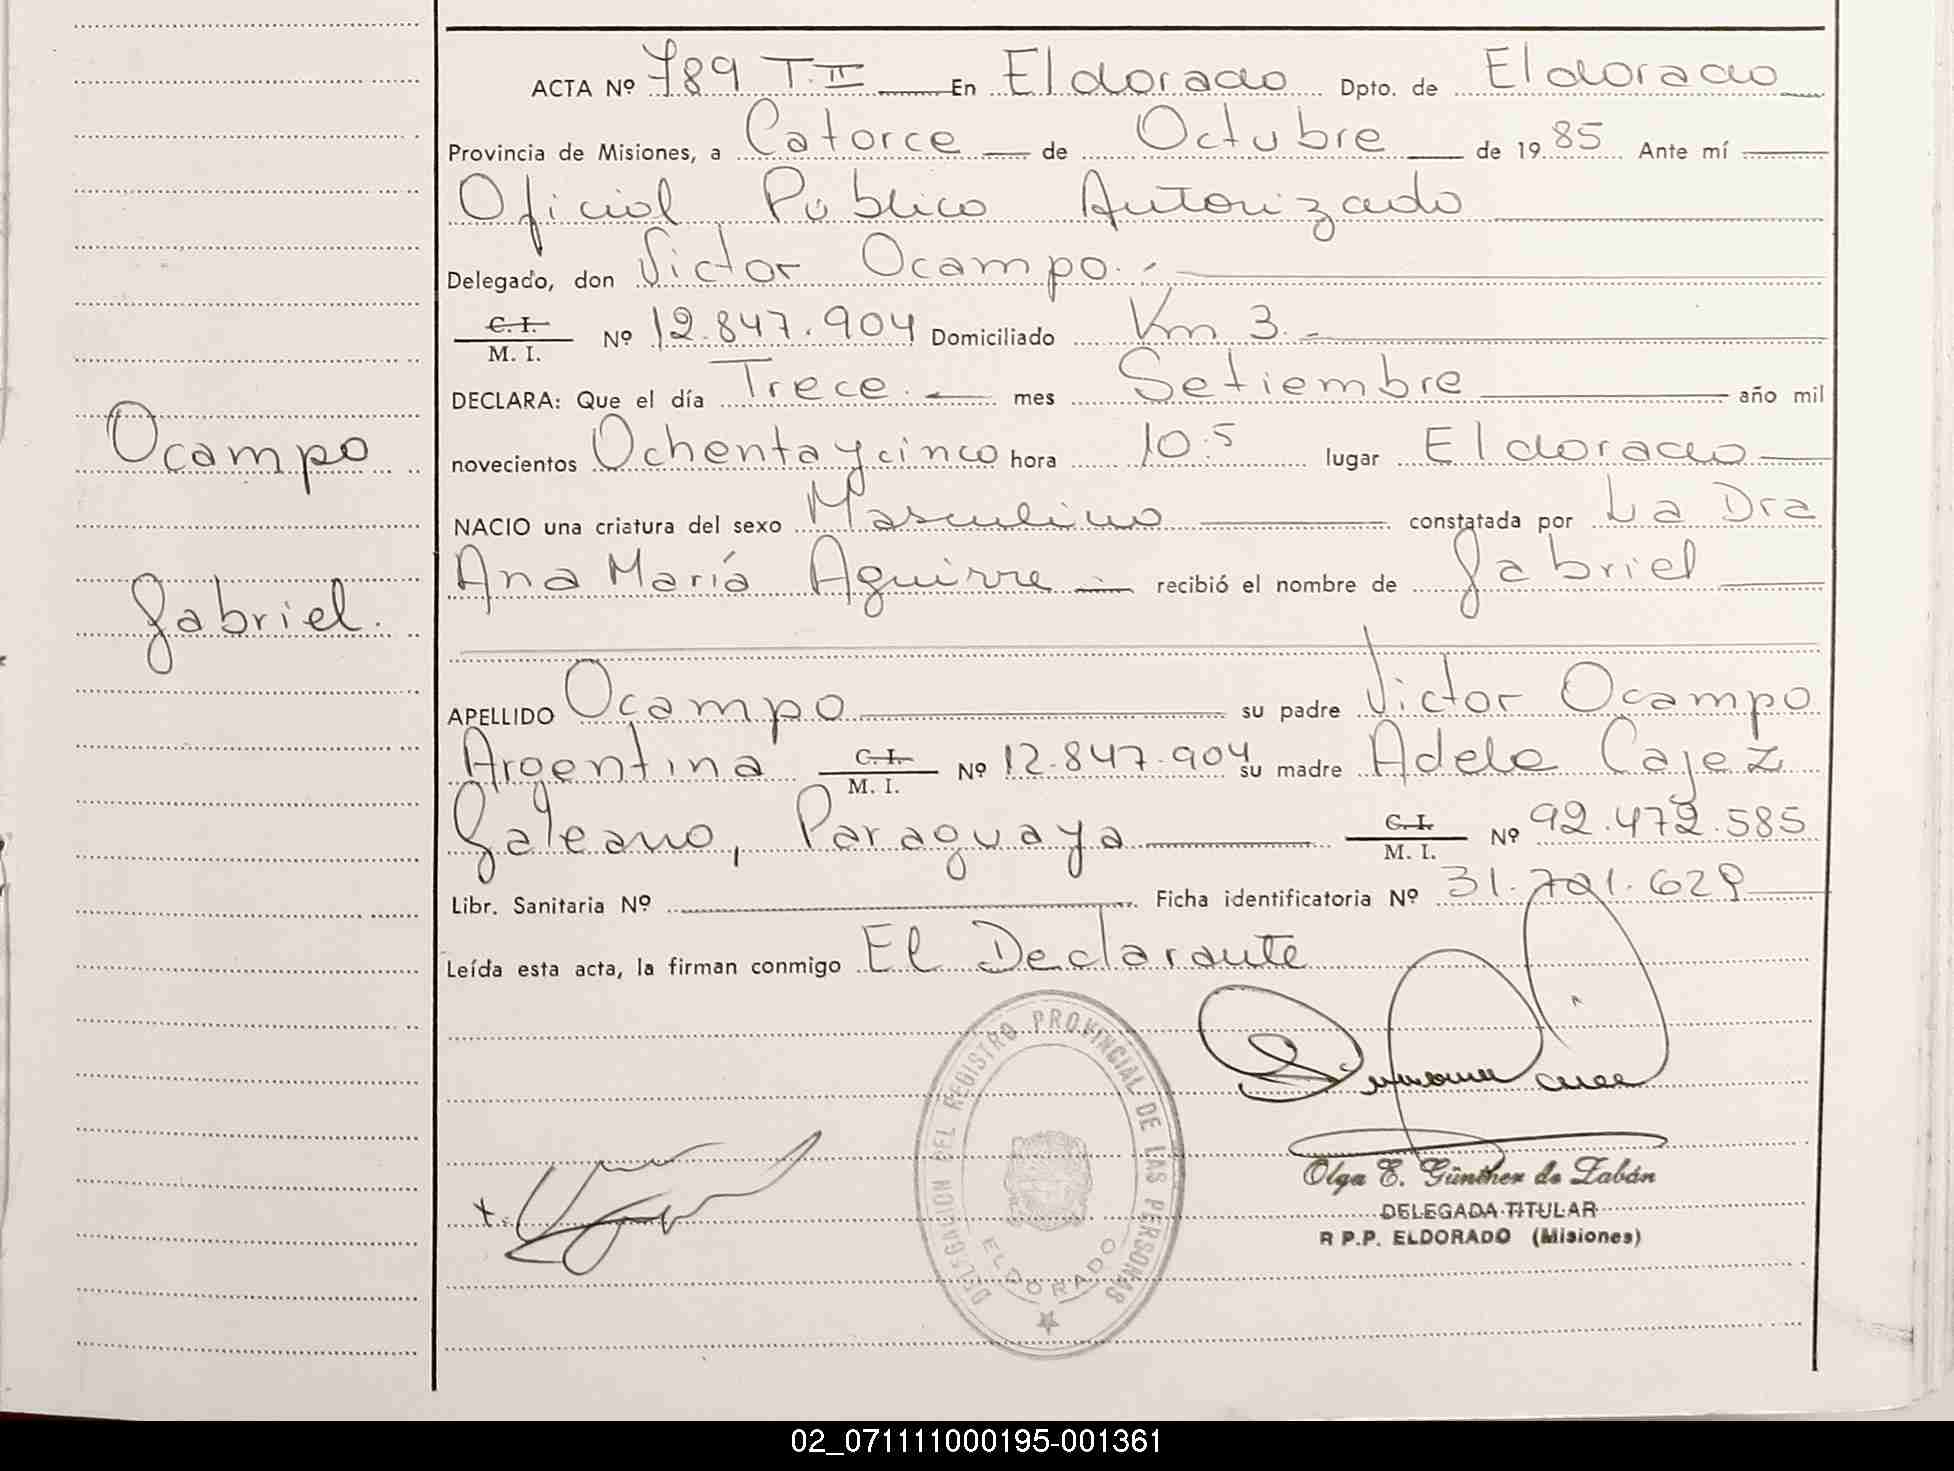 ACTA Nº 789 T. II En Eldorado Dpto. de Eldorado
Provincia de Misiones, a Catorce de Octubre de 1985 Ante mí
Oficial Publico Autorizado
Delegado, don Victor Ocampo.-
C. I.
M. I. Nº 12.847.904 Domiciliado Km 3.-
DECLARA: Que el día Trece. mes Setiembre año mil
novecientos Ochenta y cinco hora 10.5 lugar Eldorado
NACIO una criatura del sexo Masculino constatada por La Dra
Ana María Aguirre recibió el nombre de Gabriel
Ocampo
Gabriel.
APELLIDO Ocampo su padre Victor Ocampo
Argentina C. I. M. I. Nº 12.847.904 su madre Adela Cajez
Galeano, Paraguaya C. I. M. I. Nº 92.472.585
Libr. Sanitaria Nº Ficha identificatoria Nº 31.791.629
Leída esta acta, la firman conmigo El Declarante
DELEGACION DEL REGISTRO PROVINCIAL DE LAS PERSONAS
ELDORADO
Olga E. Günther de Zabán
DELEGADA TITULAR
R P.P. ELDORADO (Misiones)
02_071111000195-001361